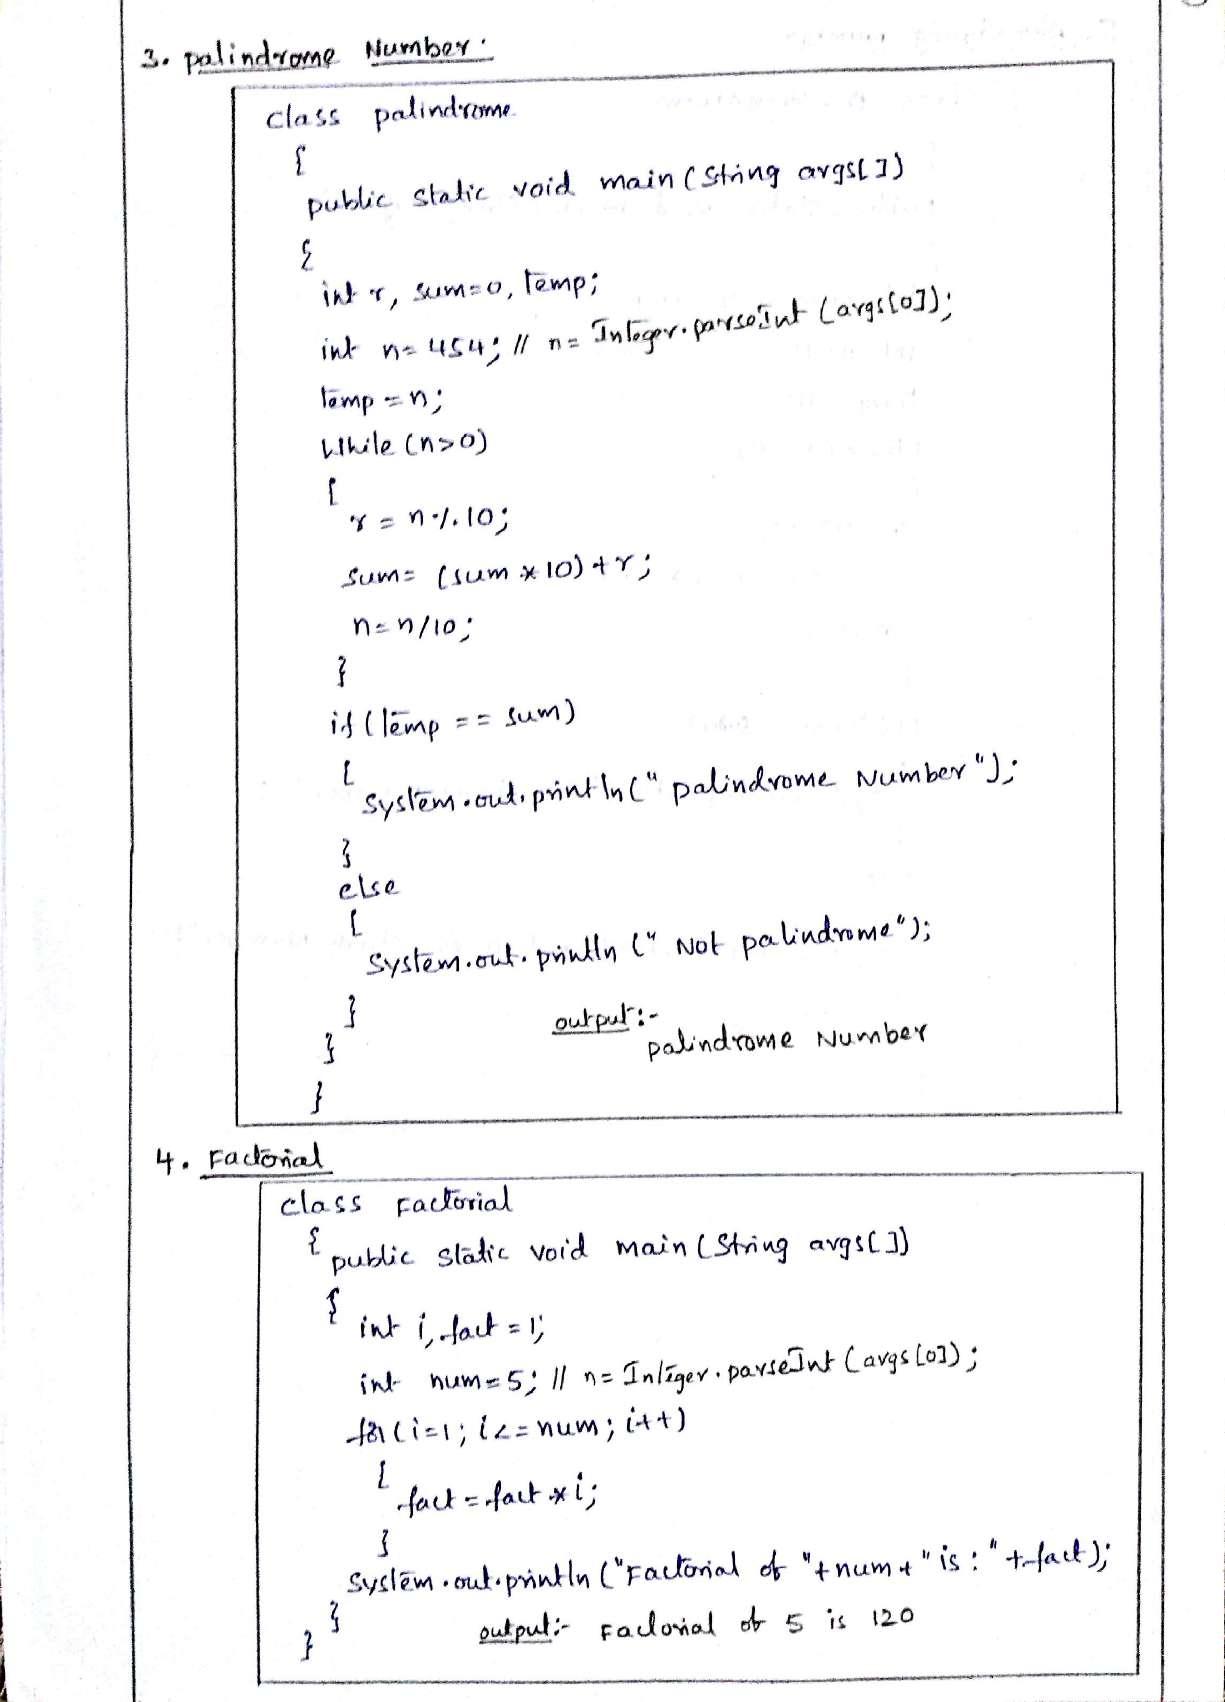 3. palindrome Number:
class palindrome
{
public static void main (String args[])
{
int r, sum=0, temp;
int n=454; // n= Integer.parseInt (args[0]);
temp=n;
While (n>0)
{
r = n%10;
sum= (sum*10)+r;
n=n/10;
}
if (temp == sum)
{
System.out.println(" palindrome Number");
}
else
{
System.out.println (" Not palindrome");
}
output:-
palindrome Number
}
}
4. Factorial
class Factorial
{
public static void main (String args[])
{
int i, fact=1;
int num=5; // n= Integer.parseInt (args[0]);
for(i=1; i<=num; i++)
{
fact=fact*i;
}
System.out.println ("Factorial of "+num+"is:"+fact);
}
output:- Factorial of 5 is 120
}